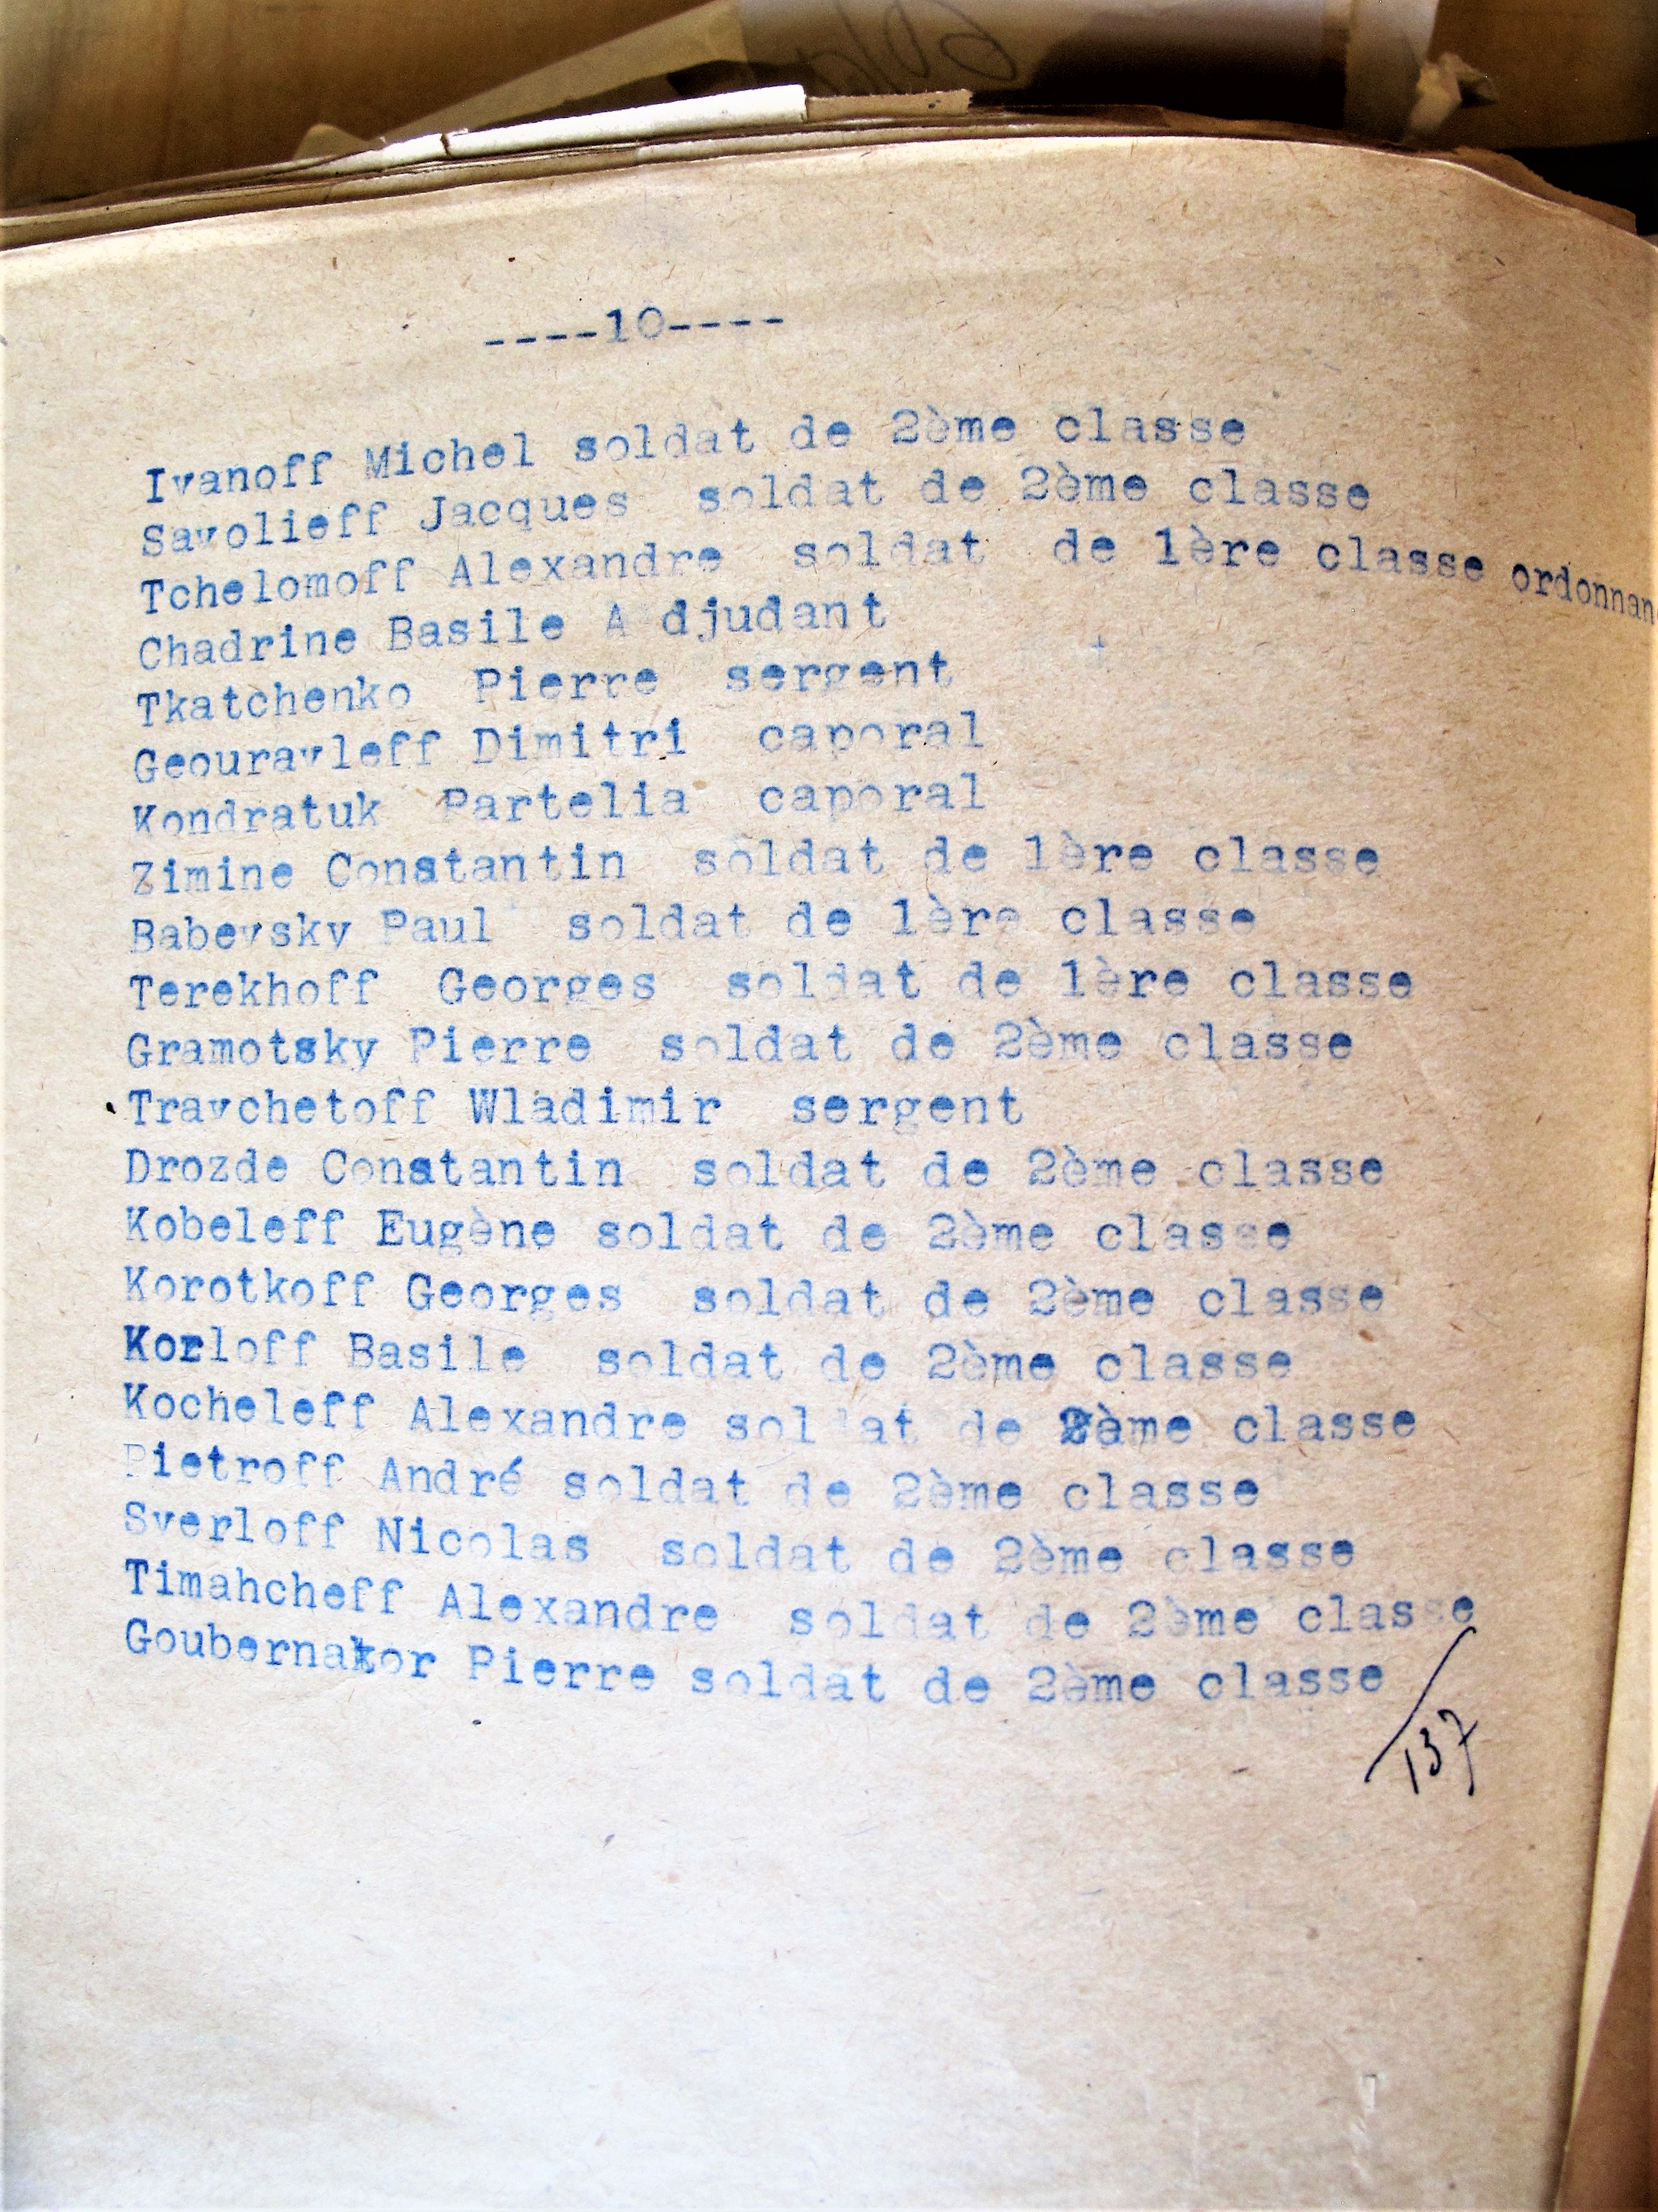 ----10----
Ivanoff Michel soldat de 2ème classe
Savolieff Jacques soldat de 2ème classe
Tchelomoff Alexandre soldat de 1ère classe ordonnan
Chadrine Basile A djudant
Tkatchenko Pierre sergent
Geouravleff Dimitri caporal
Kondratuk Partelia caporal
Zimine Constantin soldat de 1ère classe
Babevsky Paul soldat de 1ère classe
Terekhoff Georges soldat de 1ère classe
Gramotsky Pierre soldat de 2ème classe
Travchetoff Wladimir sergent
Drozde Constantin soldat de 2ème classe
Kobeleff Eugène soldat de 2ème classe
Korotkoff Georges soldat de 2ème classe
Korloff Basile soldat de 2ème classe
Kocheleff Alexandre soldat de 2ème classe
Pietroff André soldat de 2ème classe
Sverloff Nicolas soldat de 2ème classe
Timahcheff Alexandre soldat de 2ème classe
Goubernator Pierre soldat de 2ème classe
137